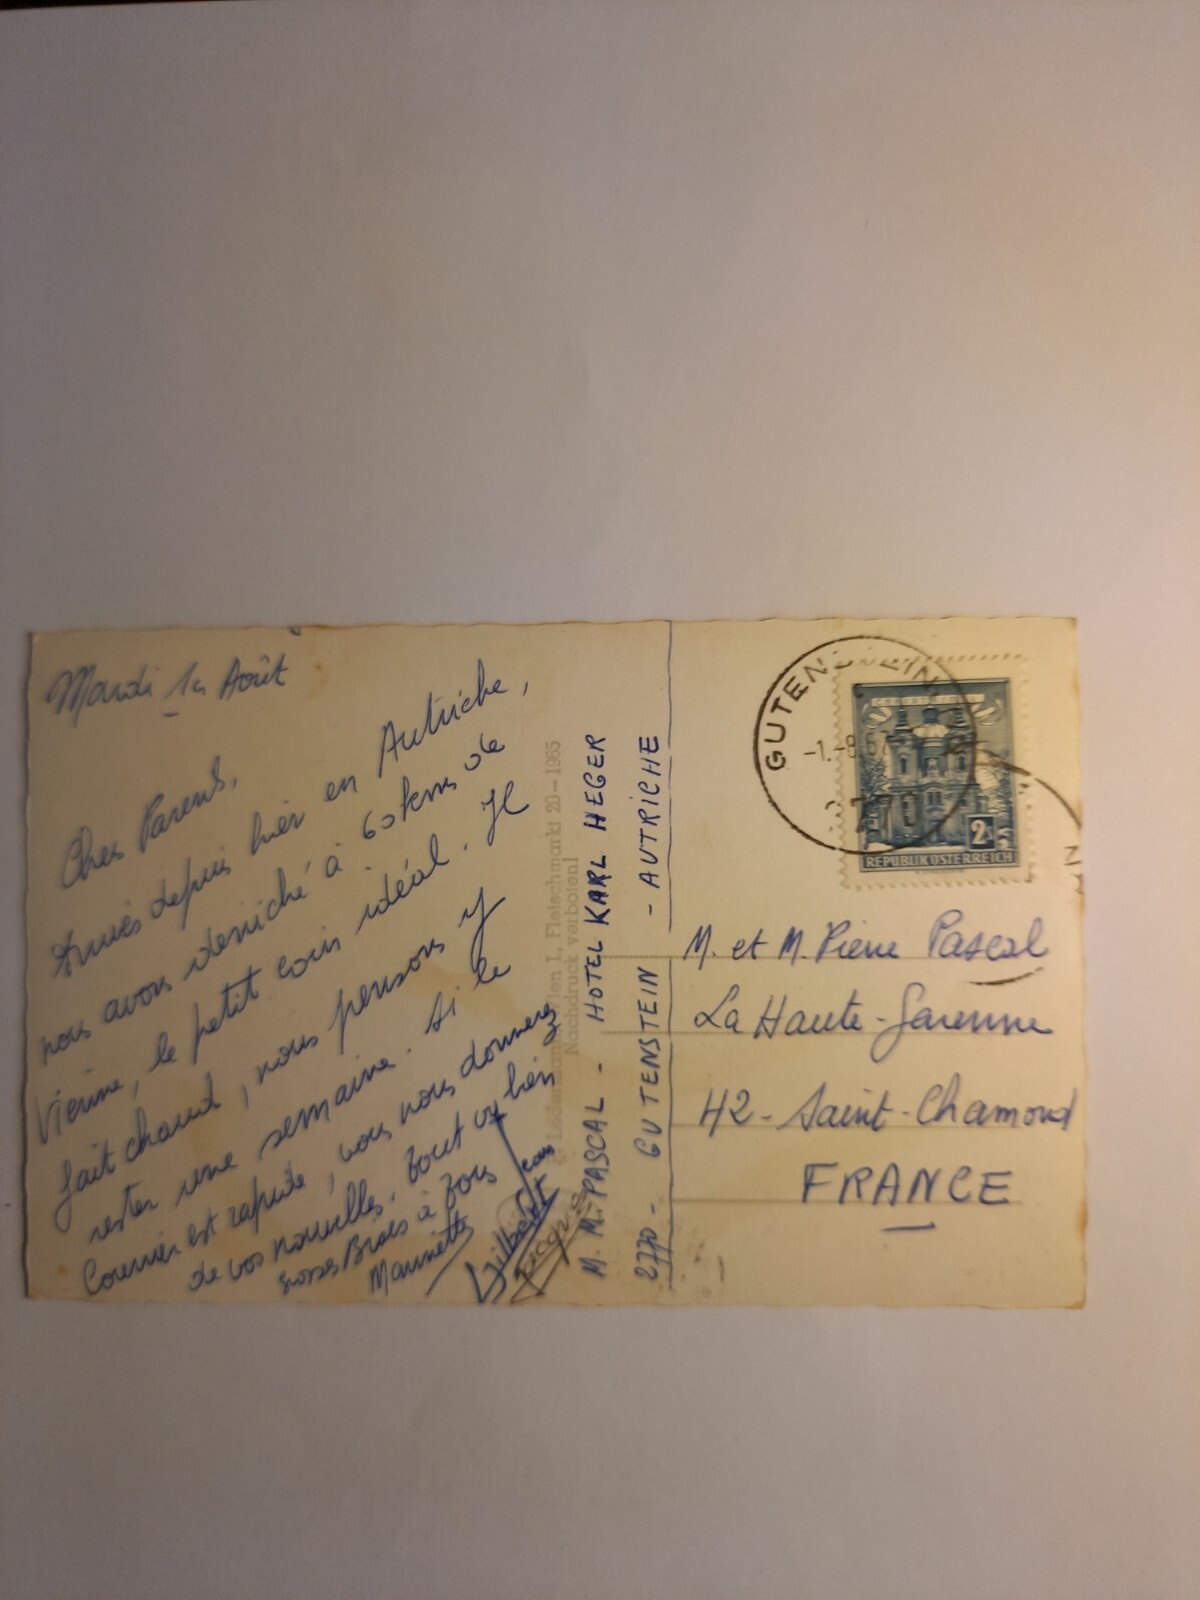 Mardi 1er Août
Chers Parents,
Arrivés depuis hier en Autriche,
nous avons déniché à 60 kms de
Vienne, le petit coin idéal. Il
fait chaud, nous pensons y
rester une semaine. Si le
Courrier est rapide, vous nous donnerez
de vos nouvelles. Tout va bien
Grosses Bises à tous
Marinette
Gilbert
M. M. PASCAL - HOTEL KARL HEGER
2770 - GUTENSTEIN - AUTRICHE
Wien I., Fleischmarkt 20 - 1965
Nachdruck verboten!
GUTENSTEIN
-1.-8.67
2770
2
REPUBLIK ÖSTERREICH
M. et M. Pierre Pascal
La Haute-Garenne
42 - Saint-Chamond
FRANCE